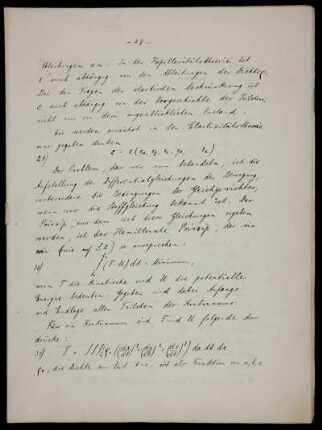 - 48 -
Ableitungen an. In der Kapillaritätstheorie ist
e auch abhängig von den Ableitungen der Dichte ρ.
Bei den Fragen der elastischen Nachwirkung ist
e auch abhängig von der Vorgeschichte der Teilchen,
nicht nur von dem augenblicklichen Zustand.
Wir werden zunächst in der Elastizitätstheorie
nur gegeben denken
Das Problem, das wir nun behandeln, ist die
Aufstellung der Differentialgleichungen der Bewegung,
insbesondere die Bedingungen des Gleichgewichtes,
wenn nur die Stoffgleichung bekannt ist. Das
Prinzip, aus dem sich diese Gleichungen ergeben
werden, ist das Hamiltonsche Prinzip, das wir
wie auszusprechen:
30) ∫ (T-U) dt = Minimum,
wenn T die Kinetische und U die potentielle
Energie bedeuten. Gegeben sind dabei Anfangs
und Endlage aller Teilchen des Kontinuums.
Für ein Kontinuum sind T und U folgende Aus-
drücke:
31)
die Dichte zur Zeit t = 0, ist als Funktion von a, b, c